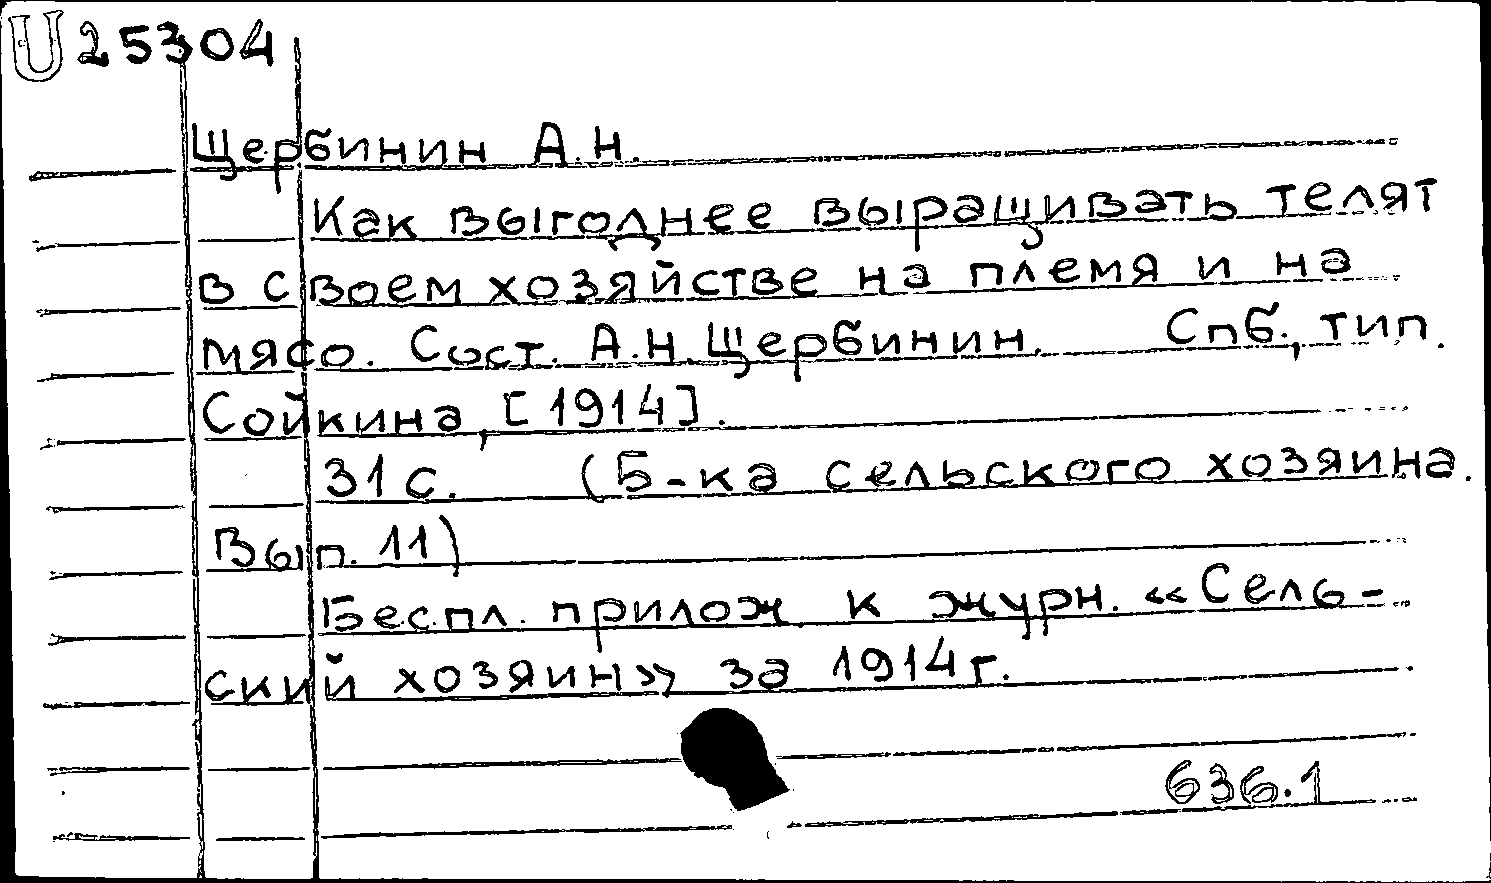 U 25304
Щербинин А.Н.
Как выгоднее выращивать телят
в своем хозяйстве на племя и на
мясо. Сост. А.Н. Щербинин. Спб., тип.
Сойкина, [1914].
31 с. (Б-ка сельского хозяина.
Вып. 11)
Беспл. прилож. к журн. «Сель-
ский хозяин» за 1914 г.
636.1